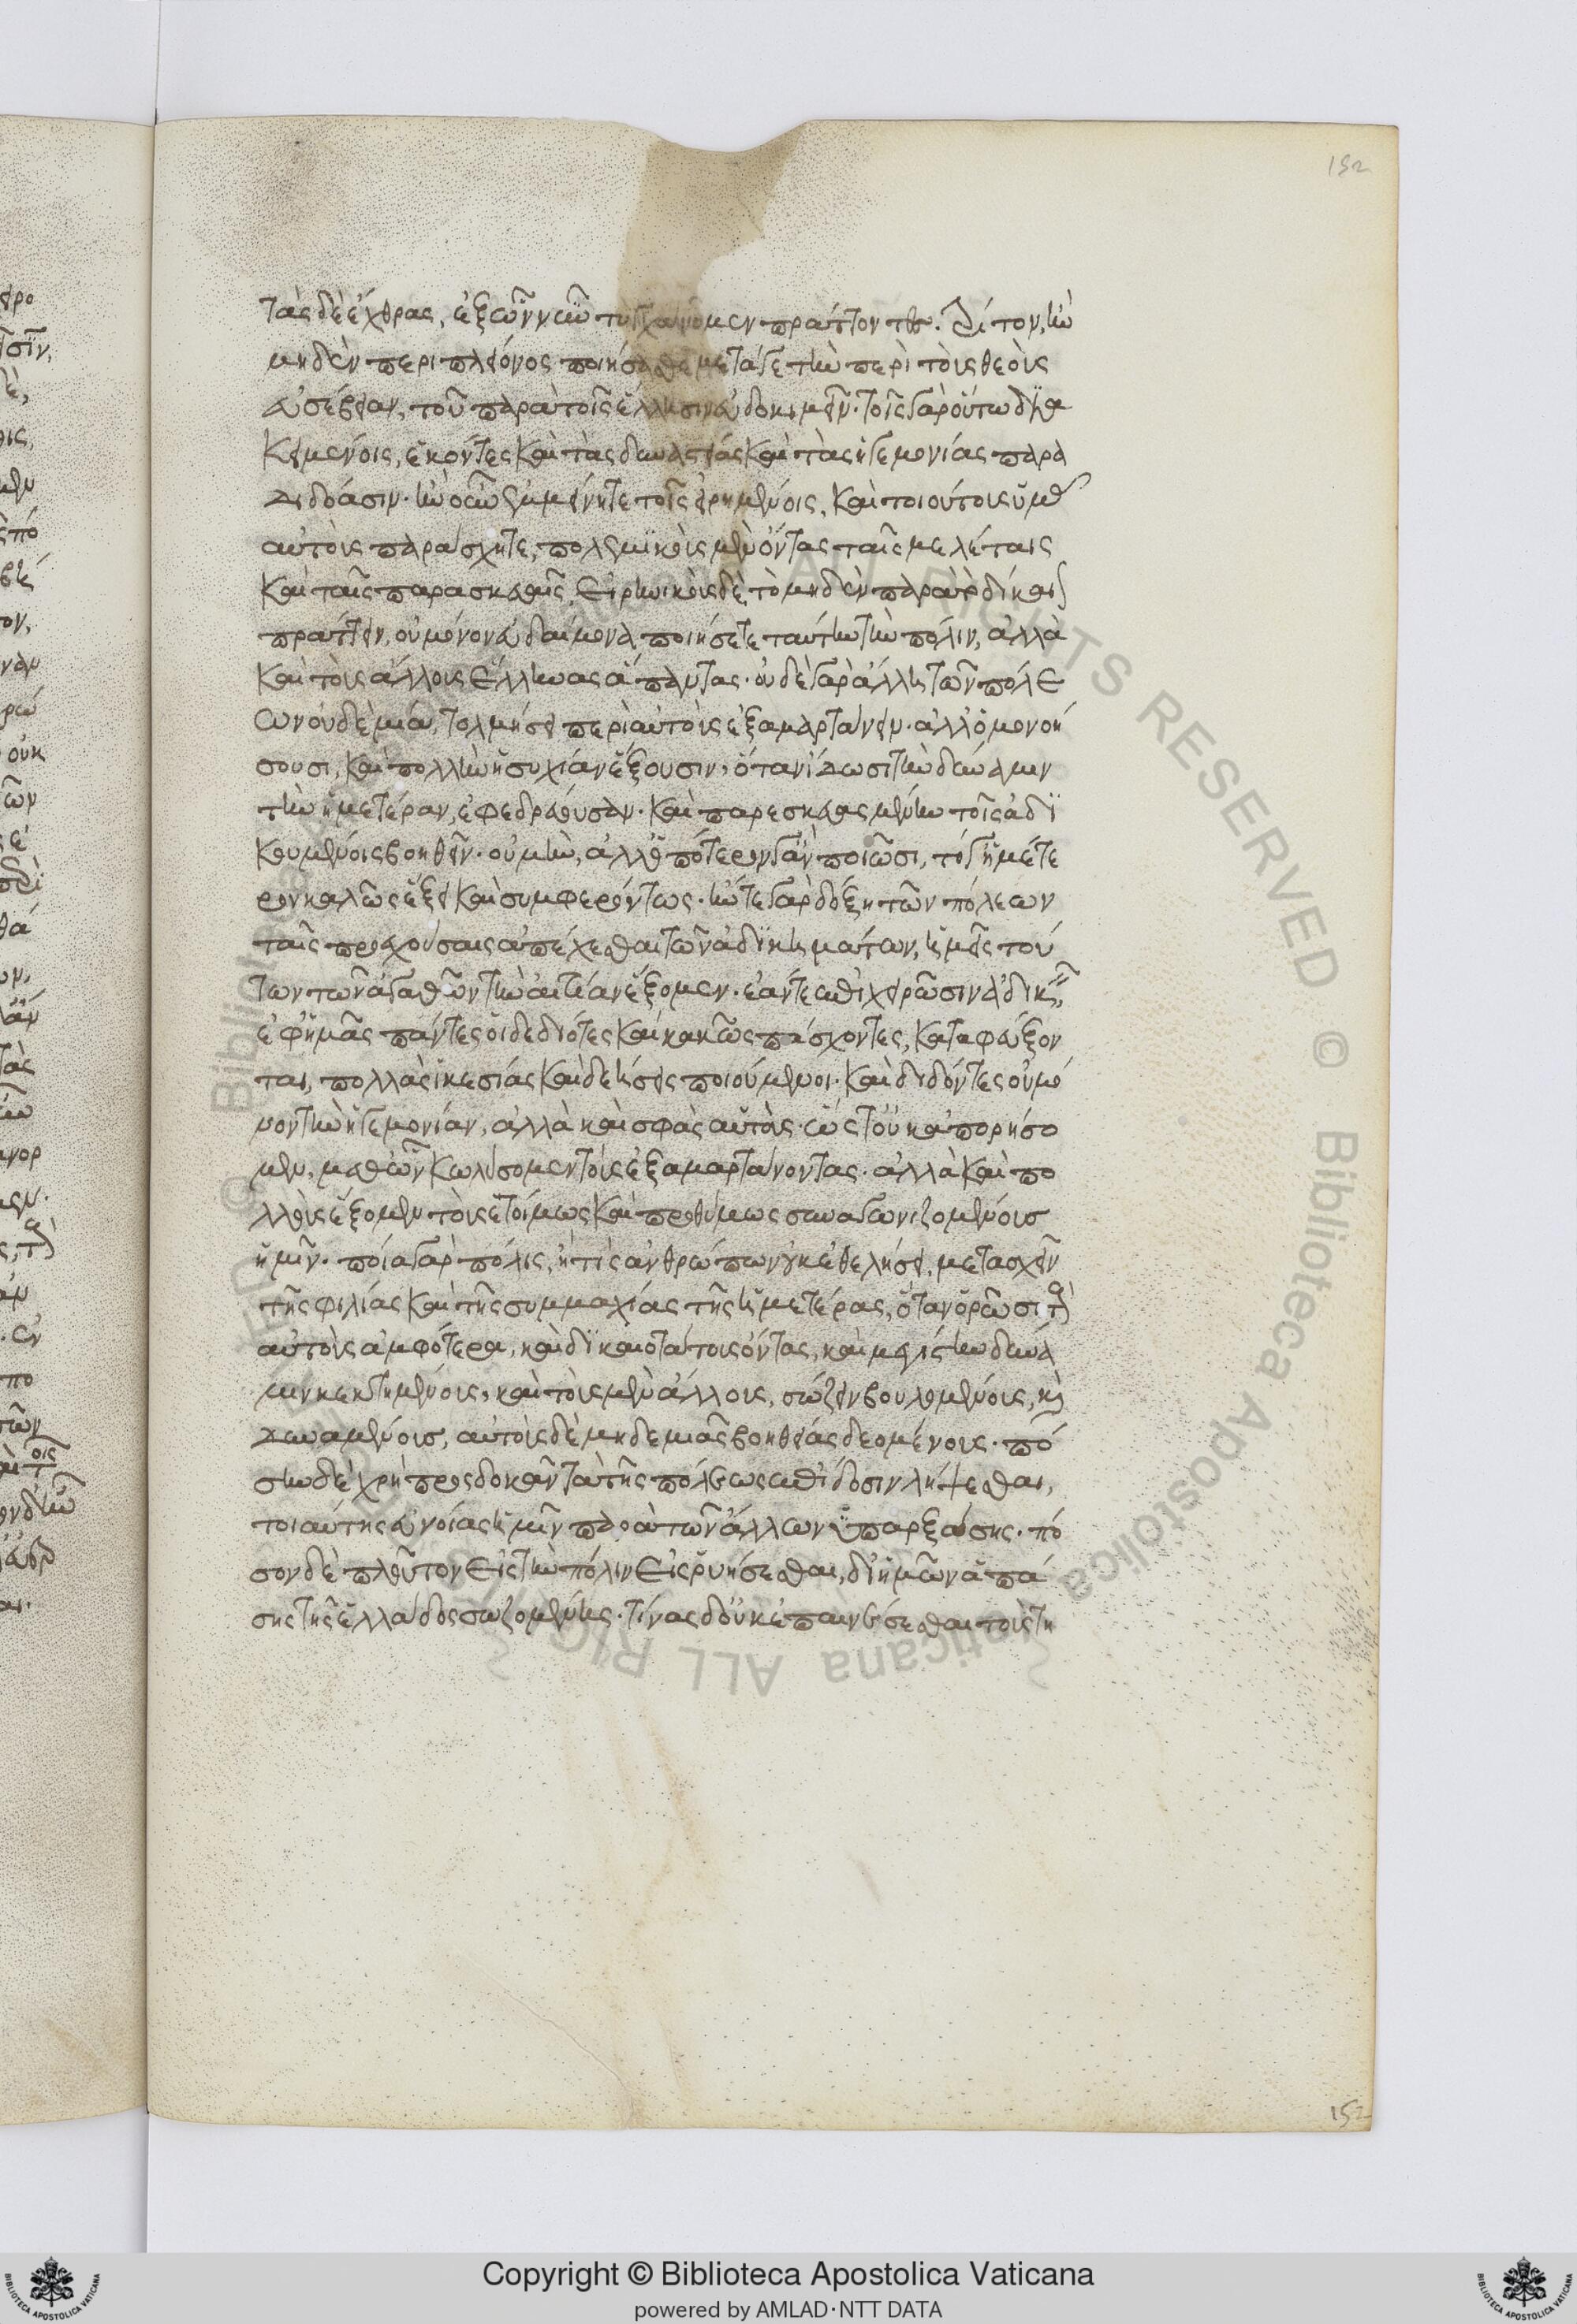 τὰς δὲ ἔχθρας, ἐξ ὧν νῦν τυγχάνομεν πράττοντες. Τρίτον, ἢν
μηδὲν περι πλείονος ποιήσησθε μετά γε τὴν περὶ τοὺς θεοὺς
εὐσέβειαν, τοῦ παρὰ τοῖς ἕλλησιν εὐδοκιμεῖν. τοῖς γὰρ οὕτω δϊα
κειμένοις, ἑκόντες καὶ τὰς δυναστείας καὶ τὰς ἡγεμονίας παρα
διδόασιν. ἢν οὖν ἐμμείνητε τοῖς εἰρημένοις, καὶ τοιούτους ὑμᾶς
αὐτοὺς παράσχητε, πολεμϊκοὺς μὲν ὄντας ταῖς μελέταις
καὶ ταῖς παρασκευαῖς, εἰρηνικοὺς δὲ, τὸ μηδὲν παρὰ τὸ δίκαιον
πράττειν, οὐ μόνον εὐδαίμονα ποιήσετε ταύτην τὴν πόλιν, ἀλλὰ
καὶ τοὺς ἄλλους ἕλληνας ἅπαντας. οὐδὲ γὰρ ἄλλη τῶν πόλε
ων οὐδεμία, τολμήσει περὶ αὐτοὺς ἐξαμαρτάνειν. ἀλλ' ὁμονοή
σουσι, καὶ πολλὴν ἡσυχίαν ἕξουσιν, ὅταν ἴδωσι τὴν δύναμιν
τὴν ἡμετέραν, ἐφεδρεύουσαν. καὶ παρεσκευασμένην τοῖς ἀδϊ
κουμένοις βοηθεῖν. οὐ μὴν, ἀλλ' ὁπότερον γ' ἂν ποιῶσι, τό γ' ἡμέτε
ρον καλῶς ἕξει καὶ συμφερόντως. ἤν τε γὰρ δόξῃ τῶν πόλεων
ταῖς προεχούσαις ἀπέχεσθαι τῶν ἀδϊκημάτων, ἡμεῖς τού
των τῶν ἀγαθῶν τὴν αἰτίαν ἕξομεν. ἐάν τε ἐπιχειρῶσιν ἀδικεῖν,
ἐφ' ἡμᾶς πάντες οἱ δεδιότες καὶ κακῶς πάσχοντες, καταφεύξον
ται, πολλὰς ἱκεσίας καὶ δεήσεις ποιούμενοι. καὶ διδόντες οὐ μό
νον τὴν ἡγεμονίαν, ἀλλὰ καὶ σφᾶς αὐτούς. ὥστ' οὐκ ἀπορήσο
μεν, μεθ' ὧν κωλύσομεν τοὺς ἐξαμαρτάνοντας. ἀλλὰ καὶ πο
λλοὺς ἕξομεν τοὺς ἑτοίμως καὶ προθύμως συναγωνιζομένους
ἡμῖν. ποία γὰρ πόλις, ἢ τίς ἀνθρώπων οὐκ ἐθελήσει, μετασχεῖν
τῆς φιλίας καὶ τῆς συμμαχίας τῆς ἡμετέρας, ὅταν ὁρῶσι τοὺς
αὐτοὺς ἀμφότερα, καὶ δϊκαιοτάτους ὄντας, καὶ μεγίστην δύνα
μιν κεκτημένους, καὶ τοὺς μὲν ἄλλους, σώζειν βουλομένους, καὶ
δυναμένους, αὐτοὺς δὲ μηδεμιᾶς βοηθείας δεομένους. πό
σην δὲ χρὴ προσδοκᾶν τὰ τῆς πόλεως ἐπίδοσιν λήψεσθαι,
τοιαύτης εὐνοίας ἡμῖν παρὰ τῶν ἄλλων ὑπαρξάσης. πό
σον δὲ πλοῦτον εἰς τὴν πόλιν εἰσρυήσεσθαι, δι' ἡμῶν ἁπά
σης τῆς ἑλλάδος σωζομένης. τίνας δ' οὐκ ἐπαινέσεσθαι τοὺς τη
152
152
Copyright © Biblioteca Apostolica Vaticana
powered by AMLAD·NTT DATA